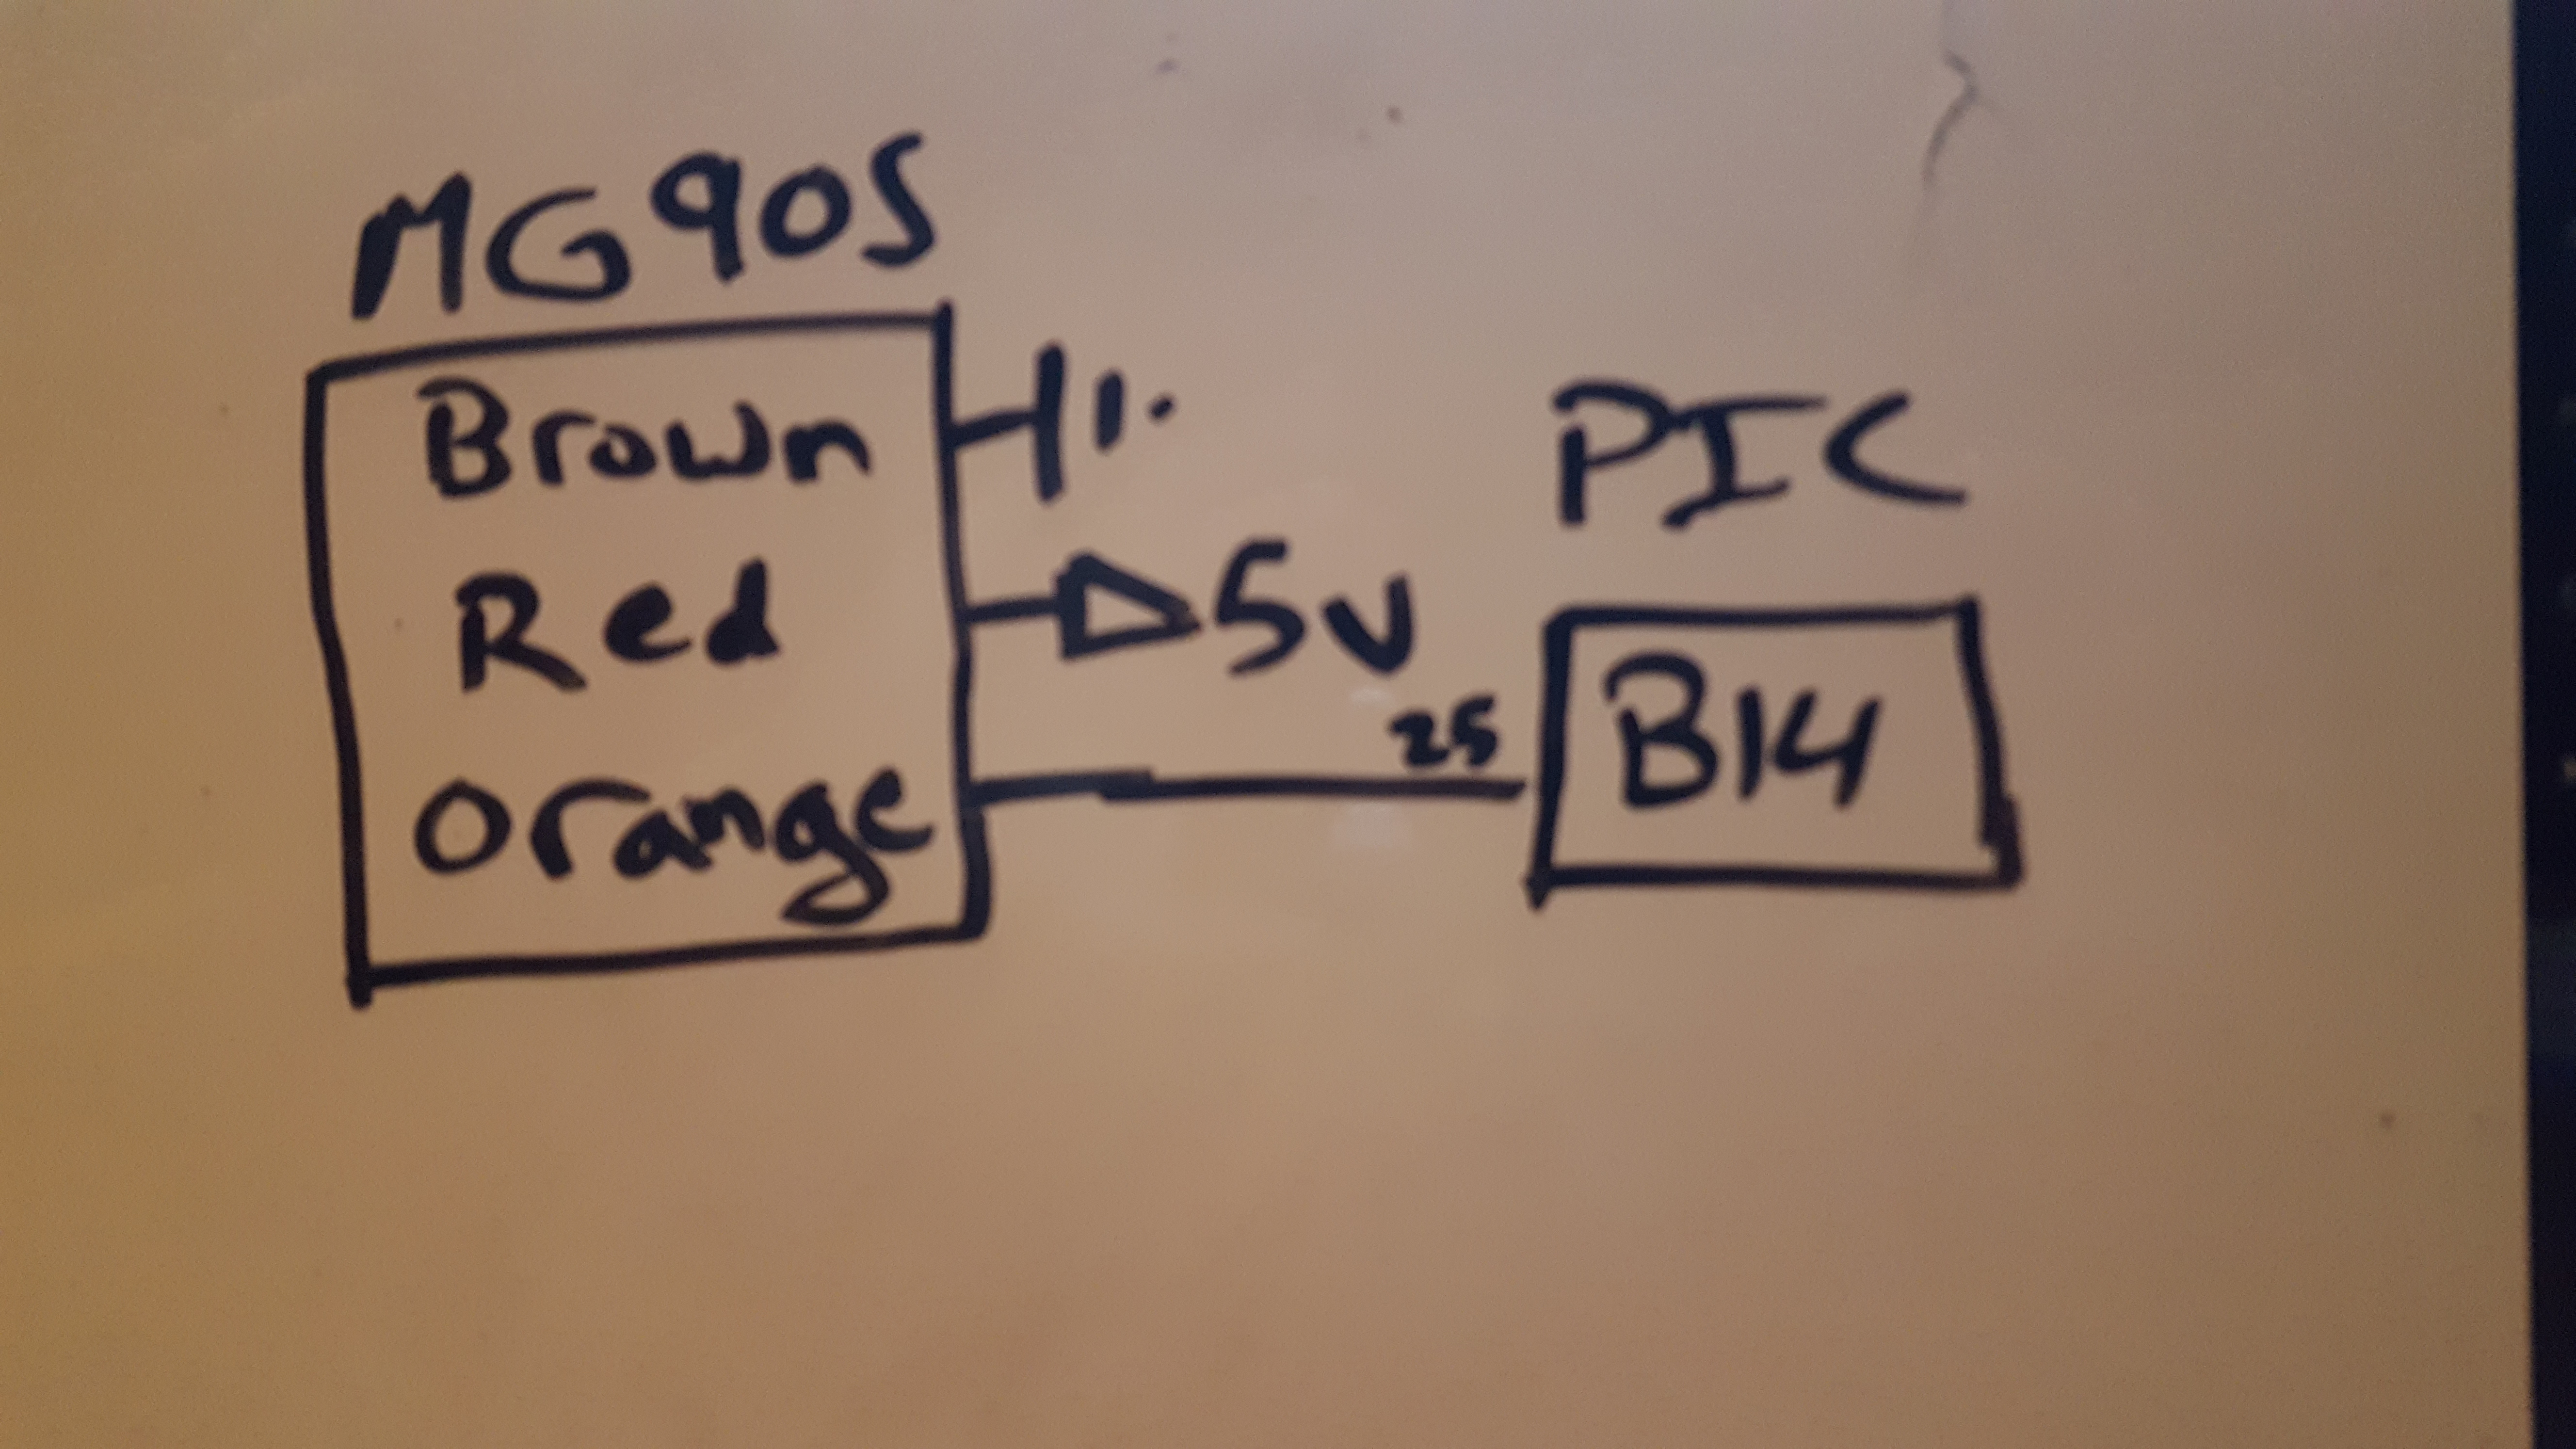 MG90S
Brown
Red
Orange
5V
25
PIC
B14